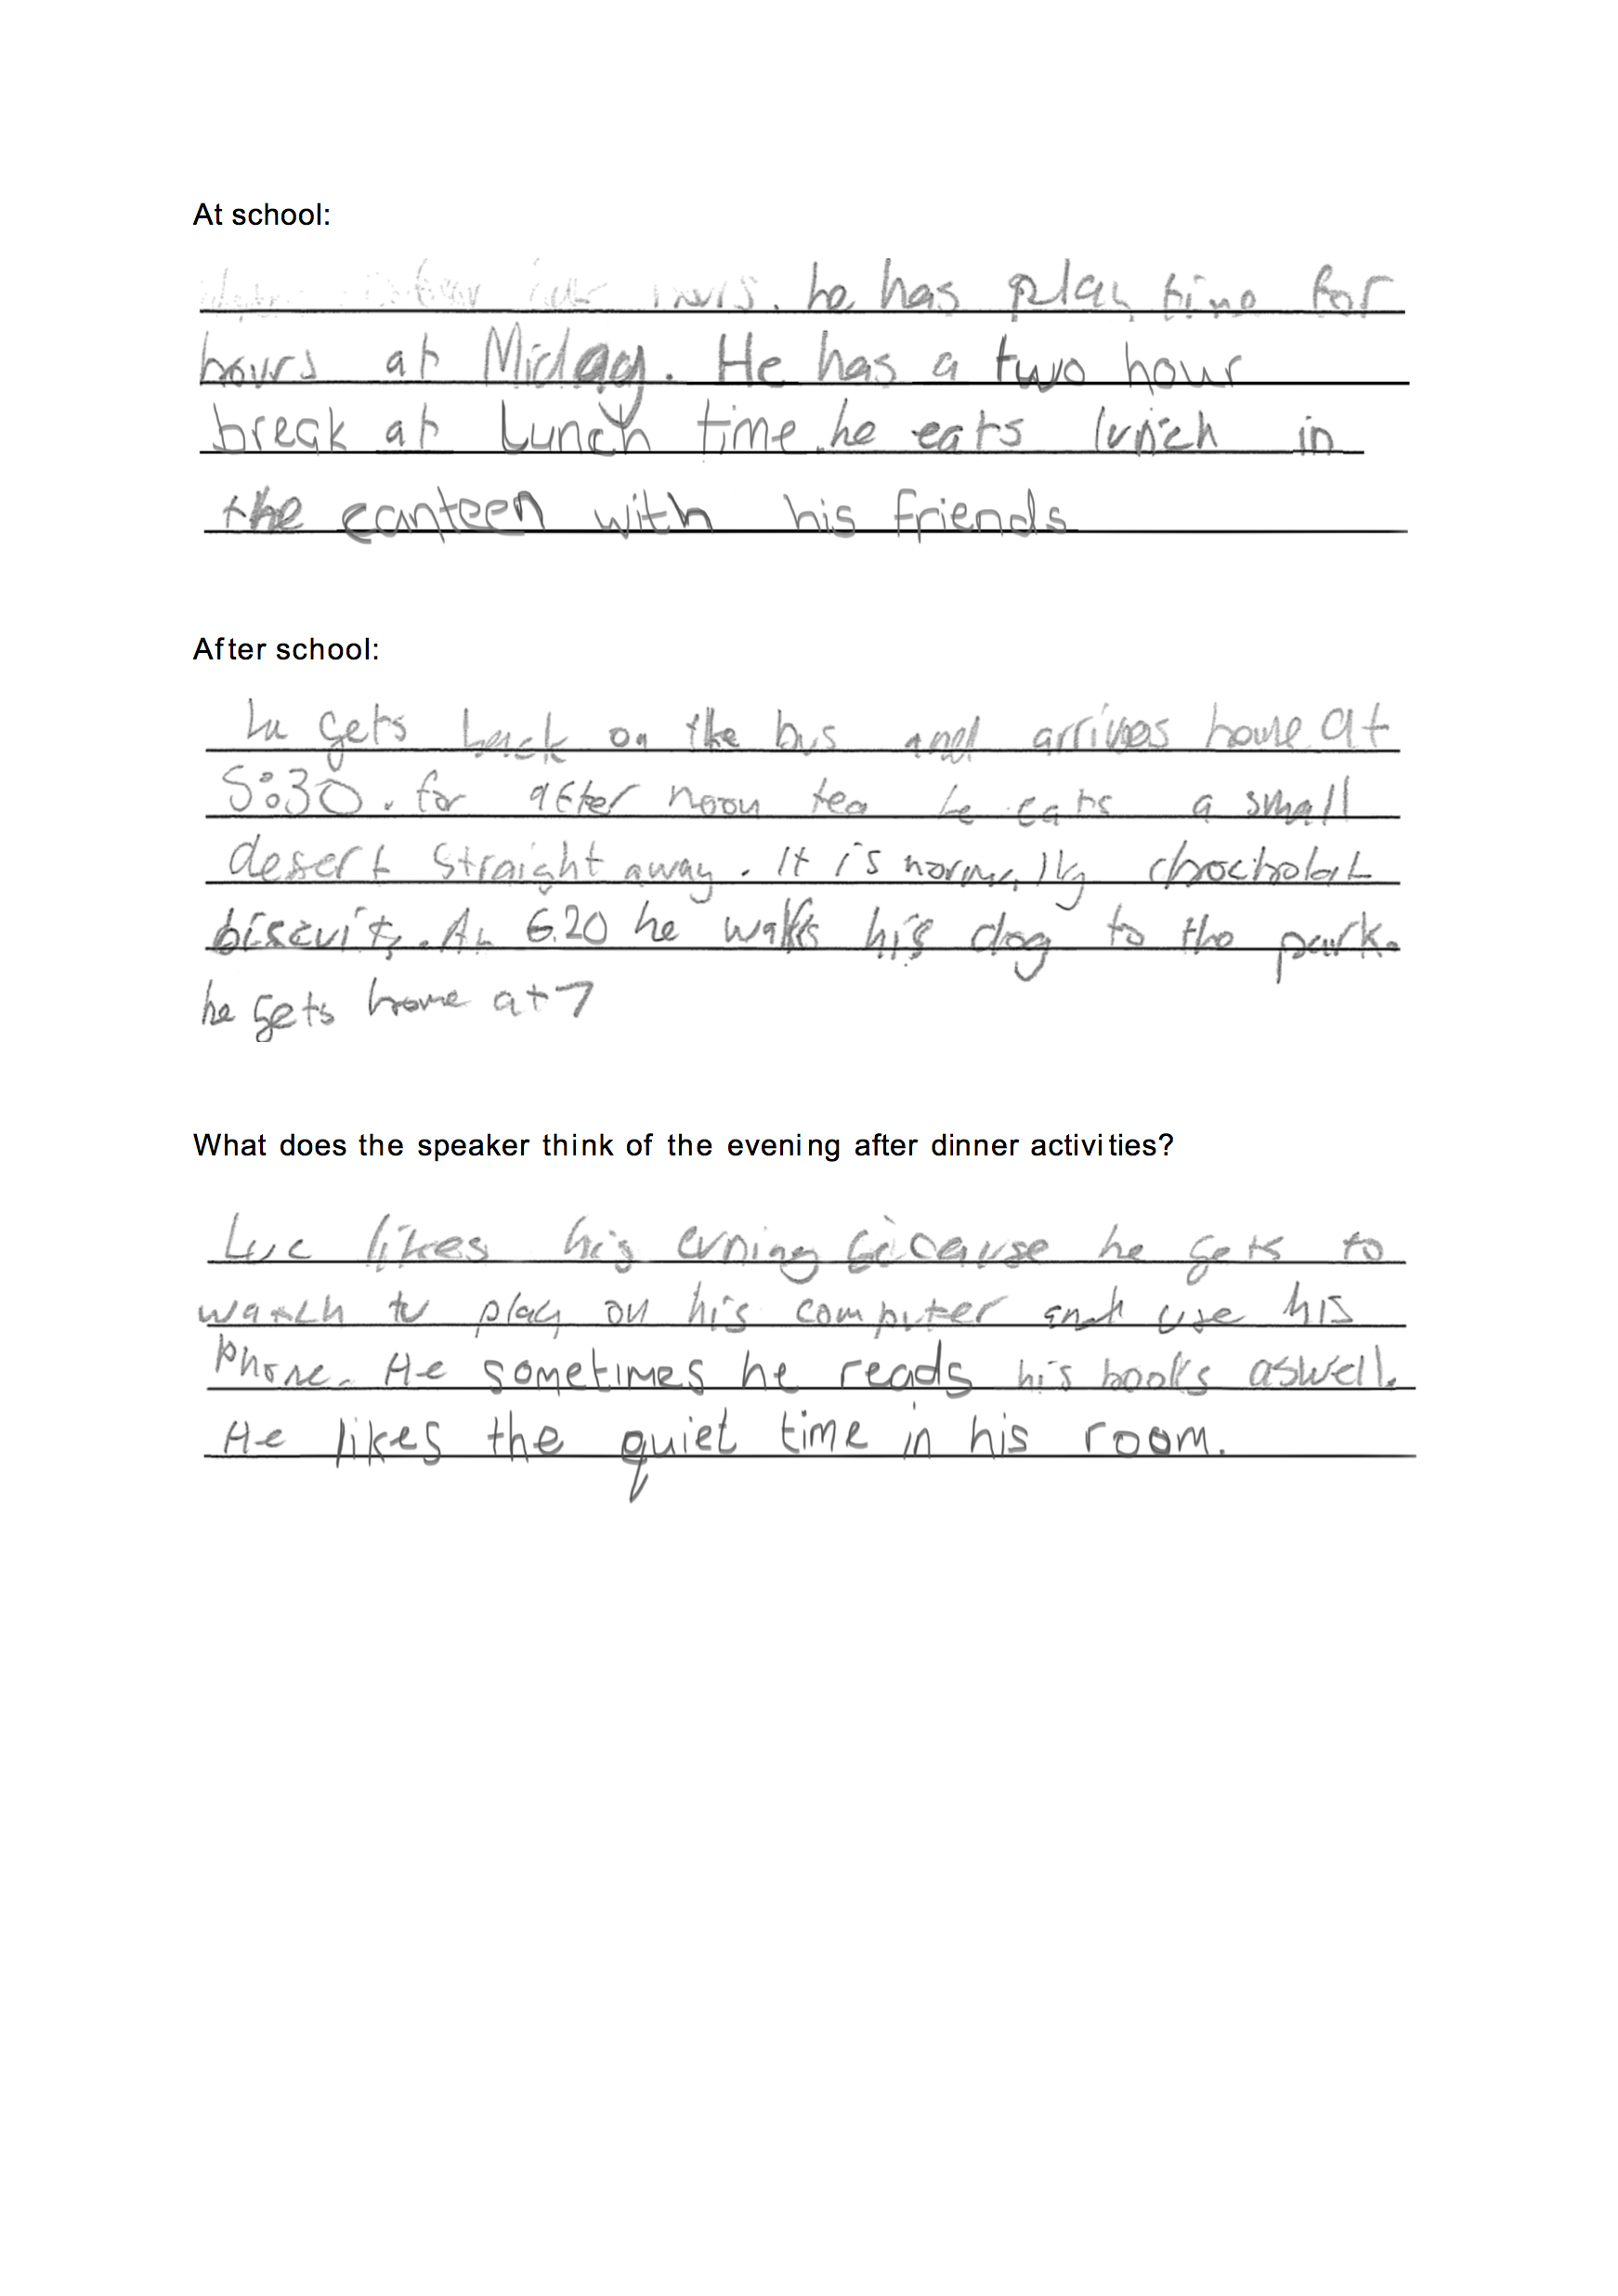 At school:
he has play time for
hours at Midday. He has a two hour
break at Lunch time he eats lunch in
the canteen with his friends
After school:
gets back on the bus and arrives home at
5:30. for after noon tea he eats a small
desert straight away. It is normally chocholat
biscuits. At 6.20 he walks his dog to the park.
he gets home at 7
What does the speaker think of the evening after dinner activities?
Luc likes his evning because he gets to
watch tv play on his computer and use his
Phone. He sometimes he reads his books aswell.
He likes the quiet time in his room.